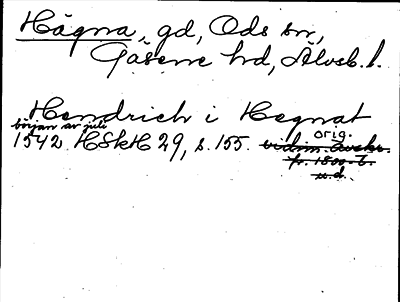 Hägna, gd, Ods sn,
Gäsene hd, Älvsb. l.
Hendrich i Hegnat
början av juli
1542 HSkH 29, s. 155. orig.
vidim. Avskr.
fr. 1800-t.
u.d.